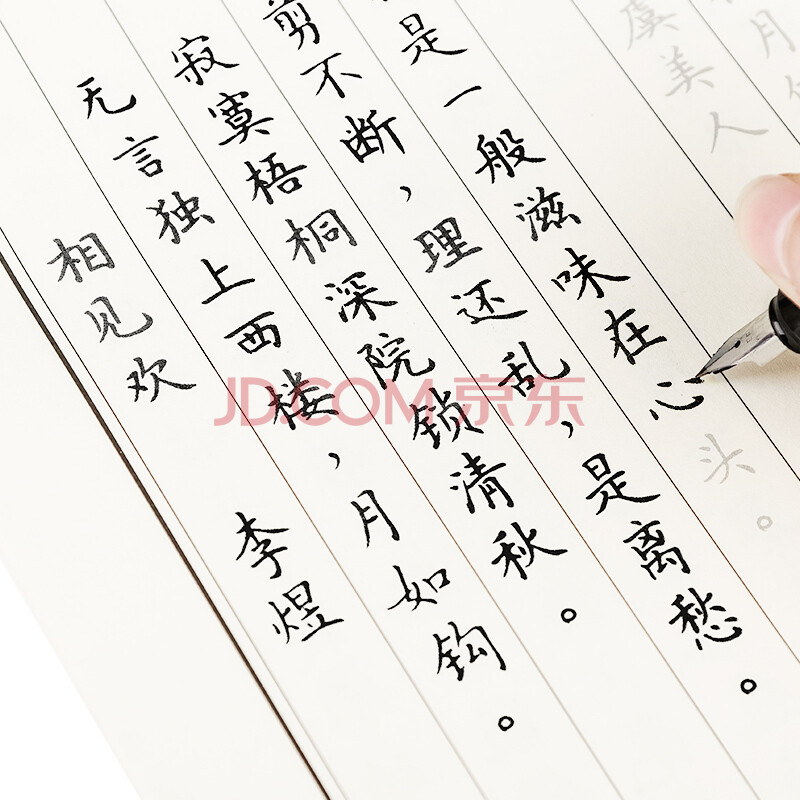 相见欢 李煜
无言独上西楼，月如钩。
寂寞梧桐深院锁清秋。
剪不断，理还乱，是离愁。
是一般滋味在心头。
虞美人
月
JD.COM 京东